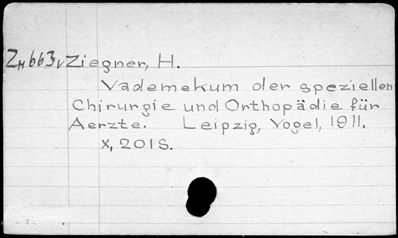 ZH663v Ziegner, H.
Vademekum der speziellen
Chirurgie und Orthopädie für
Aerzte. Leipzig, Vogel, 1911.
X, 201S.